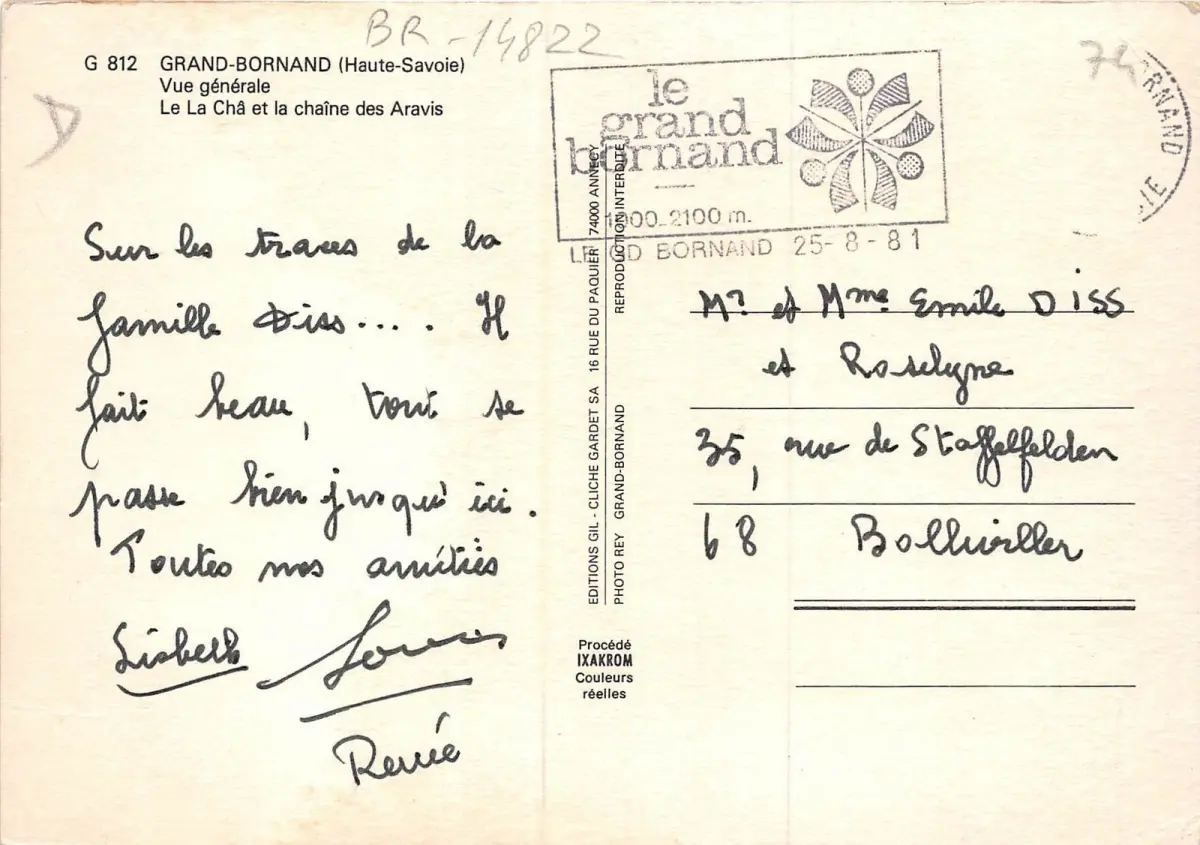 BR-14822
G 812 GRAND-BORNAND (Haute-Savoie)
Vue générale
Le La Châ et la chaîne des Aravis
D
Sur les traces de la
famille Diss.... Il
fait beau, tout se
passe bien jusqu'ici.
Toutes nos amitiés
Lisbeth
Renée
le
grand
bornand
1000-2100 m.
LE GD BORNAND 25-8-81
74
EDITIONS GIL - CLICHE GARDET SA 16 RUE DU PAQUIER 74000 ANNECY
PHOTO REY GRAND-BORNAND REPRODUCTION INTERDITE
Procédé
IXAKROM
Couleurs
réelles
Mr et Mme Emile DISS
et Roselyne
35, rue de Staffelfelden
68 Bollwiller